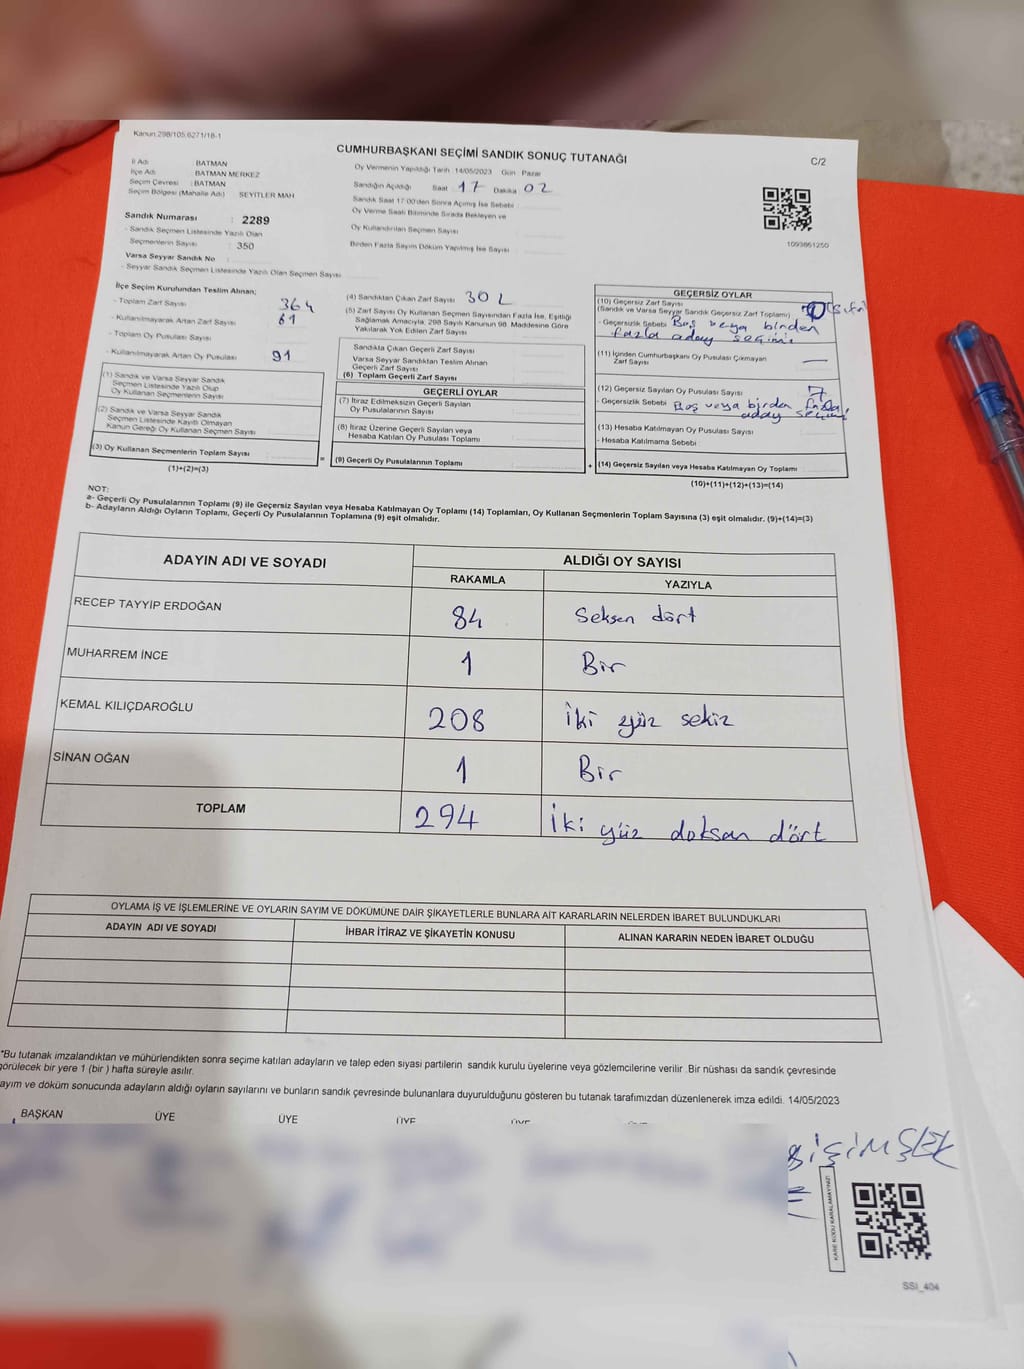 Kanun:298/105,6271/18-1
CUMHURBAŞKANI SEÇİMİ SANDIK SONUÇ TUTANAĞI
C/2
İl Adı : BATMAN
İlçe Adı : BATMAN MERKEZ
Seçim Çevresi : BATMAN
Seçim Bölgesi (Mahalle Adı) : SEYİTLER MAH
Sandık Numarası : 2289
- Sandık Seçmen Listesinde Yazılı Olan
Seçmenlerin Sayısı : 350
Varsa Seyyar Sandık No :
- Seyyar Sandık Seçmen Listesinde Yazılı Olan Seçmen Sayısı
Oy Vermenin Yapıldığı Tarih :14/05/2023 Gün : Pazar
Sandığın Açıldığı Saat 17 Dakika 02
Sandık Saat 17:00'den Sonra Açımış İse Sebebi :
Oy Verme Saati Bitiminde Sırada Bekleyen ve
Oy Kullandırılan Seçmen Sayısı
Birden Fazla Sayım Döküm Yapılmış İse Sayısı
1093861250
İlçe Seçim Kurulundan Teslim Alınan;
- Toplam Zarf Sayısı 364
- Kullanılmayarak Artan Zarf Sayısı 61
- Toplam Oy Pusulası Sayısı
- Kullanılmayarak Artan Oy Pusulası 91
(1) Sandık ve Varsa Seyyar Sandık
Seçmen Listesinde Yazılı Olup
Oy Kullanan Seçmenlerin Sayısı
(2) Sandık ve Varsa Seyyar Sandık
Seçmen Listesinde Kayıtlı Olmayan
Kanun Gereği Oy Kullanan Seçmen Sayısı
(3) Oy Kullanan Seçmenlerin Toplam Sayısı
(1)+(2)=(3)
(4) Sandıktan Çıkan Zarf Sayısı 302
(5) Zarf Sayısı Oy Kullanan Seçmen Sayısından Fazla İse, Eşitliği
Sağlamak Amacıyla; 298 Sayılı Kanunun 98. Maddesine Göre
Yakılarak Yok Edilen Zarf Sayısı
Sandıkta Çıkan Geçerli Zarf Sayısı
Varsa Seyyar Sandıktan Teslim Alınan
Geçerli Zarf Sayısı
(6) Toplam Geçerli Zarf Sayısı
GEÇERLİ OYLAR
(7) İtiraz Edilmeksizin Geçerli Sayılan
Oy Pusulalarının Sayısı
(8) İtiraz Üzerine Geçerli Sayılan veya
Hesaba Katılan Oy Pusulası Toplamı
= (9) Geçerli Oy Pusulalarının Toplamı
GEÇERSİZ OYLAR
(10) Geçersiz Zarf Sayısı
(Sandık ve Varsa Seyyar Sandık Geçersiz Zarf Toplamı) 0 (sıfır)
- Geçersizlik Sebebi Boş veya birden
fazla aday seçimi
(11) İçinden Cumhurbaşkanı Oy Pusulası Çıkmayan
Zarf Sayısı —
(12) Geçersiz Sayılan Oy Pusulası Sayısı 7
- Geçersizlik Sebebi Boş veya birden fazla
aday seçimi
(13) Hesaba Katılmayan Oy Pusulası Sayısı
- Hesaba Katılmama Sebebi
+ (14) Geçersiz Sayılan veya Hesaba Katılmayan Oy Toplamı
(10)+(11)+(12)+(13)=(14)
NOT:
a- Geçerli Oy Pusulalarının Toplamı (9) ile Geçersiz Sayılan veya Hesaba Katılmayan Oy Toplamı (14) Toplamları, Oy Kullanan Seçmenlerin Toplam Sayısına (3) eşit olmalıdır. (9)+(14)=(3)
b- Adayların Aldığı Oyların Toplamı, Geçerli Oy Pusulalarının Toplamına (9) eşit olmalıdır.
ADAYIN ADI VE SOYADI ALDIĞI OY SAYISI
RAKAMLA YAZIYLA
RECEP TAYYİP ERDOĞAN 84 Seksen dört
MUHARREM İNCE 1 Bir
KEMAL KILIÇDAROĞLU 208 İki yüz sekiz
SİNAN OĞAN 1 Bir
TOPLAM 294 İki yüz doksan dört
OYLAMA İŞ VE İŞLEMLERİNE VE OYLARIN SAYIM VE DÖKÜMÜNE DAİR ŞİKAYETLERLE BUNLARA AİT KARARLARIN NELERDEN İBARET BULUNDUKLARI
ADAYIN ADI VE SOYADI İHBAR İTİRAZ VE ŞİKAYETİN KONUSU ALINAN KARARIN NEDEN İBARET OLDUĞU
*Bu tutanak imzalandıktan ve mühürlendikten sonra seçime katılan adayların ve talep eden siyasi partilerin sandık kurulu üyelerine veya gözlemcilerine verilir. Bir nüshası da sandık çevresinde
görülecek bir yere 1 (bir) hafta süreyle asılır.
ayım ve döküm sonucunda adayların aldığı oyların sayılarını ve bunların sandık çevresinde bulunanlara duyurulduğunu gösteren bu tutanak tarafımızdan düzenlenerek imza edildi. 14/05/2023
BAŞKAN ÜYE ÜYE ÜYE ÜYE
KARE KODU KARALAMAYINIZ!
SSI_404